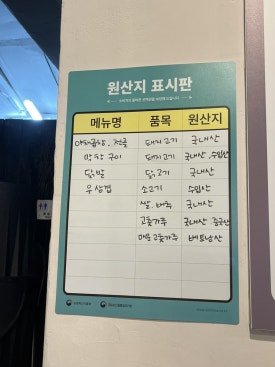 원산지 표시판
메뉴명 품목 원산지
돼지고기 국내산
막창구이 돼지고기 국내산, 수입산
닭발 닭고기 국내산
우삼겹 소고기 수입산
쌀, 배추 국내산
고춧가루 국내산, 중국산
매운고춧가루 베트남산